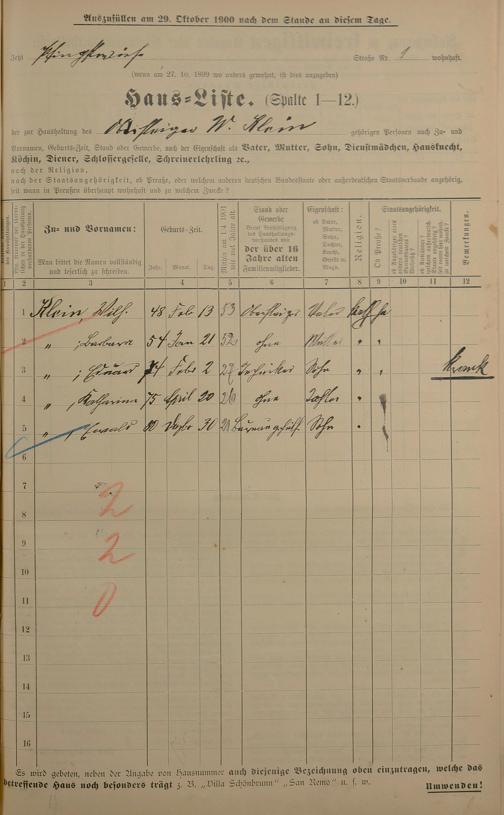 Auszufüllen am 29. Oktober 1900 nach dem Stande an diesem Tage.
Jetzt Straße Nr. 1 wohnhaft.
(wenn am 27. 10. 1899 wo anders gewohnt, ist dies anzugeben)
Haus=Liste. (Spalte 1—12.)
der zur Haushaltung des Obersteiger W. Klein gehörigen Personen nach Zu= und
Vornamen, Geburts=Zeit, Stand oder Gewerbe, auch der Eigenschaft als Vater, Mutter, Sohn, Dienstmädchen, Hausknecht,
Köchin, Diener, Schlossergeselle, Schreinerlehrling ꝛc.,
nach der Religion,
nach der Staatsangehörigkeit, ob Preuße, oder welchem anderen deutschen Bundesstaate oder außerdeutschen Staatsverbande angehörig,
seit wann in Preußen überhaupt wohnhaft und zu welchem Zwecke?
Zu= und Vornamen:
Man bittet die Namen vollständig und leserlich zu schreiben.
Geburts=Zeit.
Jahr. Monat. Tag.
Stand oder Gewerbe
der über 16 Jahre alten Familienmitglieder.
Eigenschaft:
ob Vater, Mutter, Sohn, Tochter, Knecht, Gesell o. Magd.
Religion.
Staatsangehörigkeit.
Ob Preuße?
Bemerkungen.
1 2 3 4 5 6 7 8 9 10 11 12
1 Klein, Wilh. 48 Feb 13 53 Obersteiger Vater kath ja
2 „ , Barbara 54 Jan 21 52 ohne Mutter „ „
3 „ , Eduard 74 Febr 2 27 Techniker Sohn „ „ krank
4 „ , Katharina 75 April 20 26 ohne Tochter „
5 „ , Ewald 80 Dezbr 30 21 Bureaugehilf. Sohn „
6
7 2
8
9 2
10
11 0
12
13
14
15
16
Es wird gebeten, neben der Angabe von Hausnummer auch diejenige Bezeichnung oben einzutragen, welche das
betreffende Haus noch besonders trägt z. B. „Villa Schönbrunn" „San Remo" u. s. w. Umwenden!